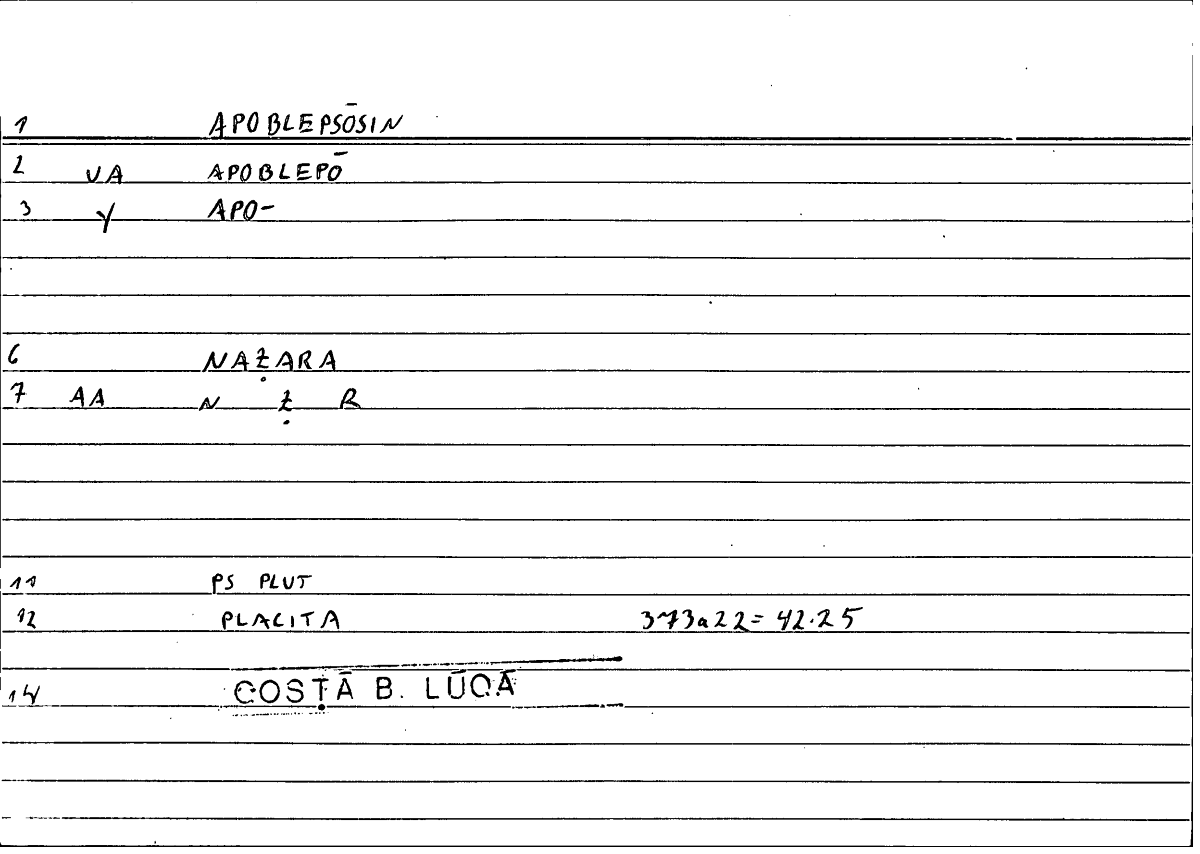 1 APOBLEPSŌSIN
2 VA APOBLEPŌ
3 Y APO-
6 NAẒARA
7 AA N Ẓ R
11 PS PLUT
12 PLACITA 373a22=42.25
14 COSṬĀ B. LŪQĀ